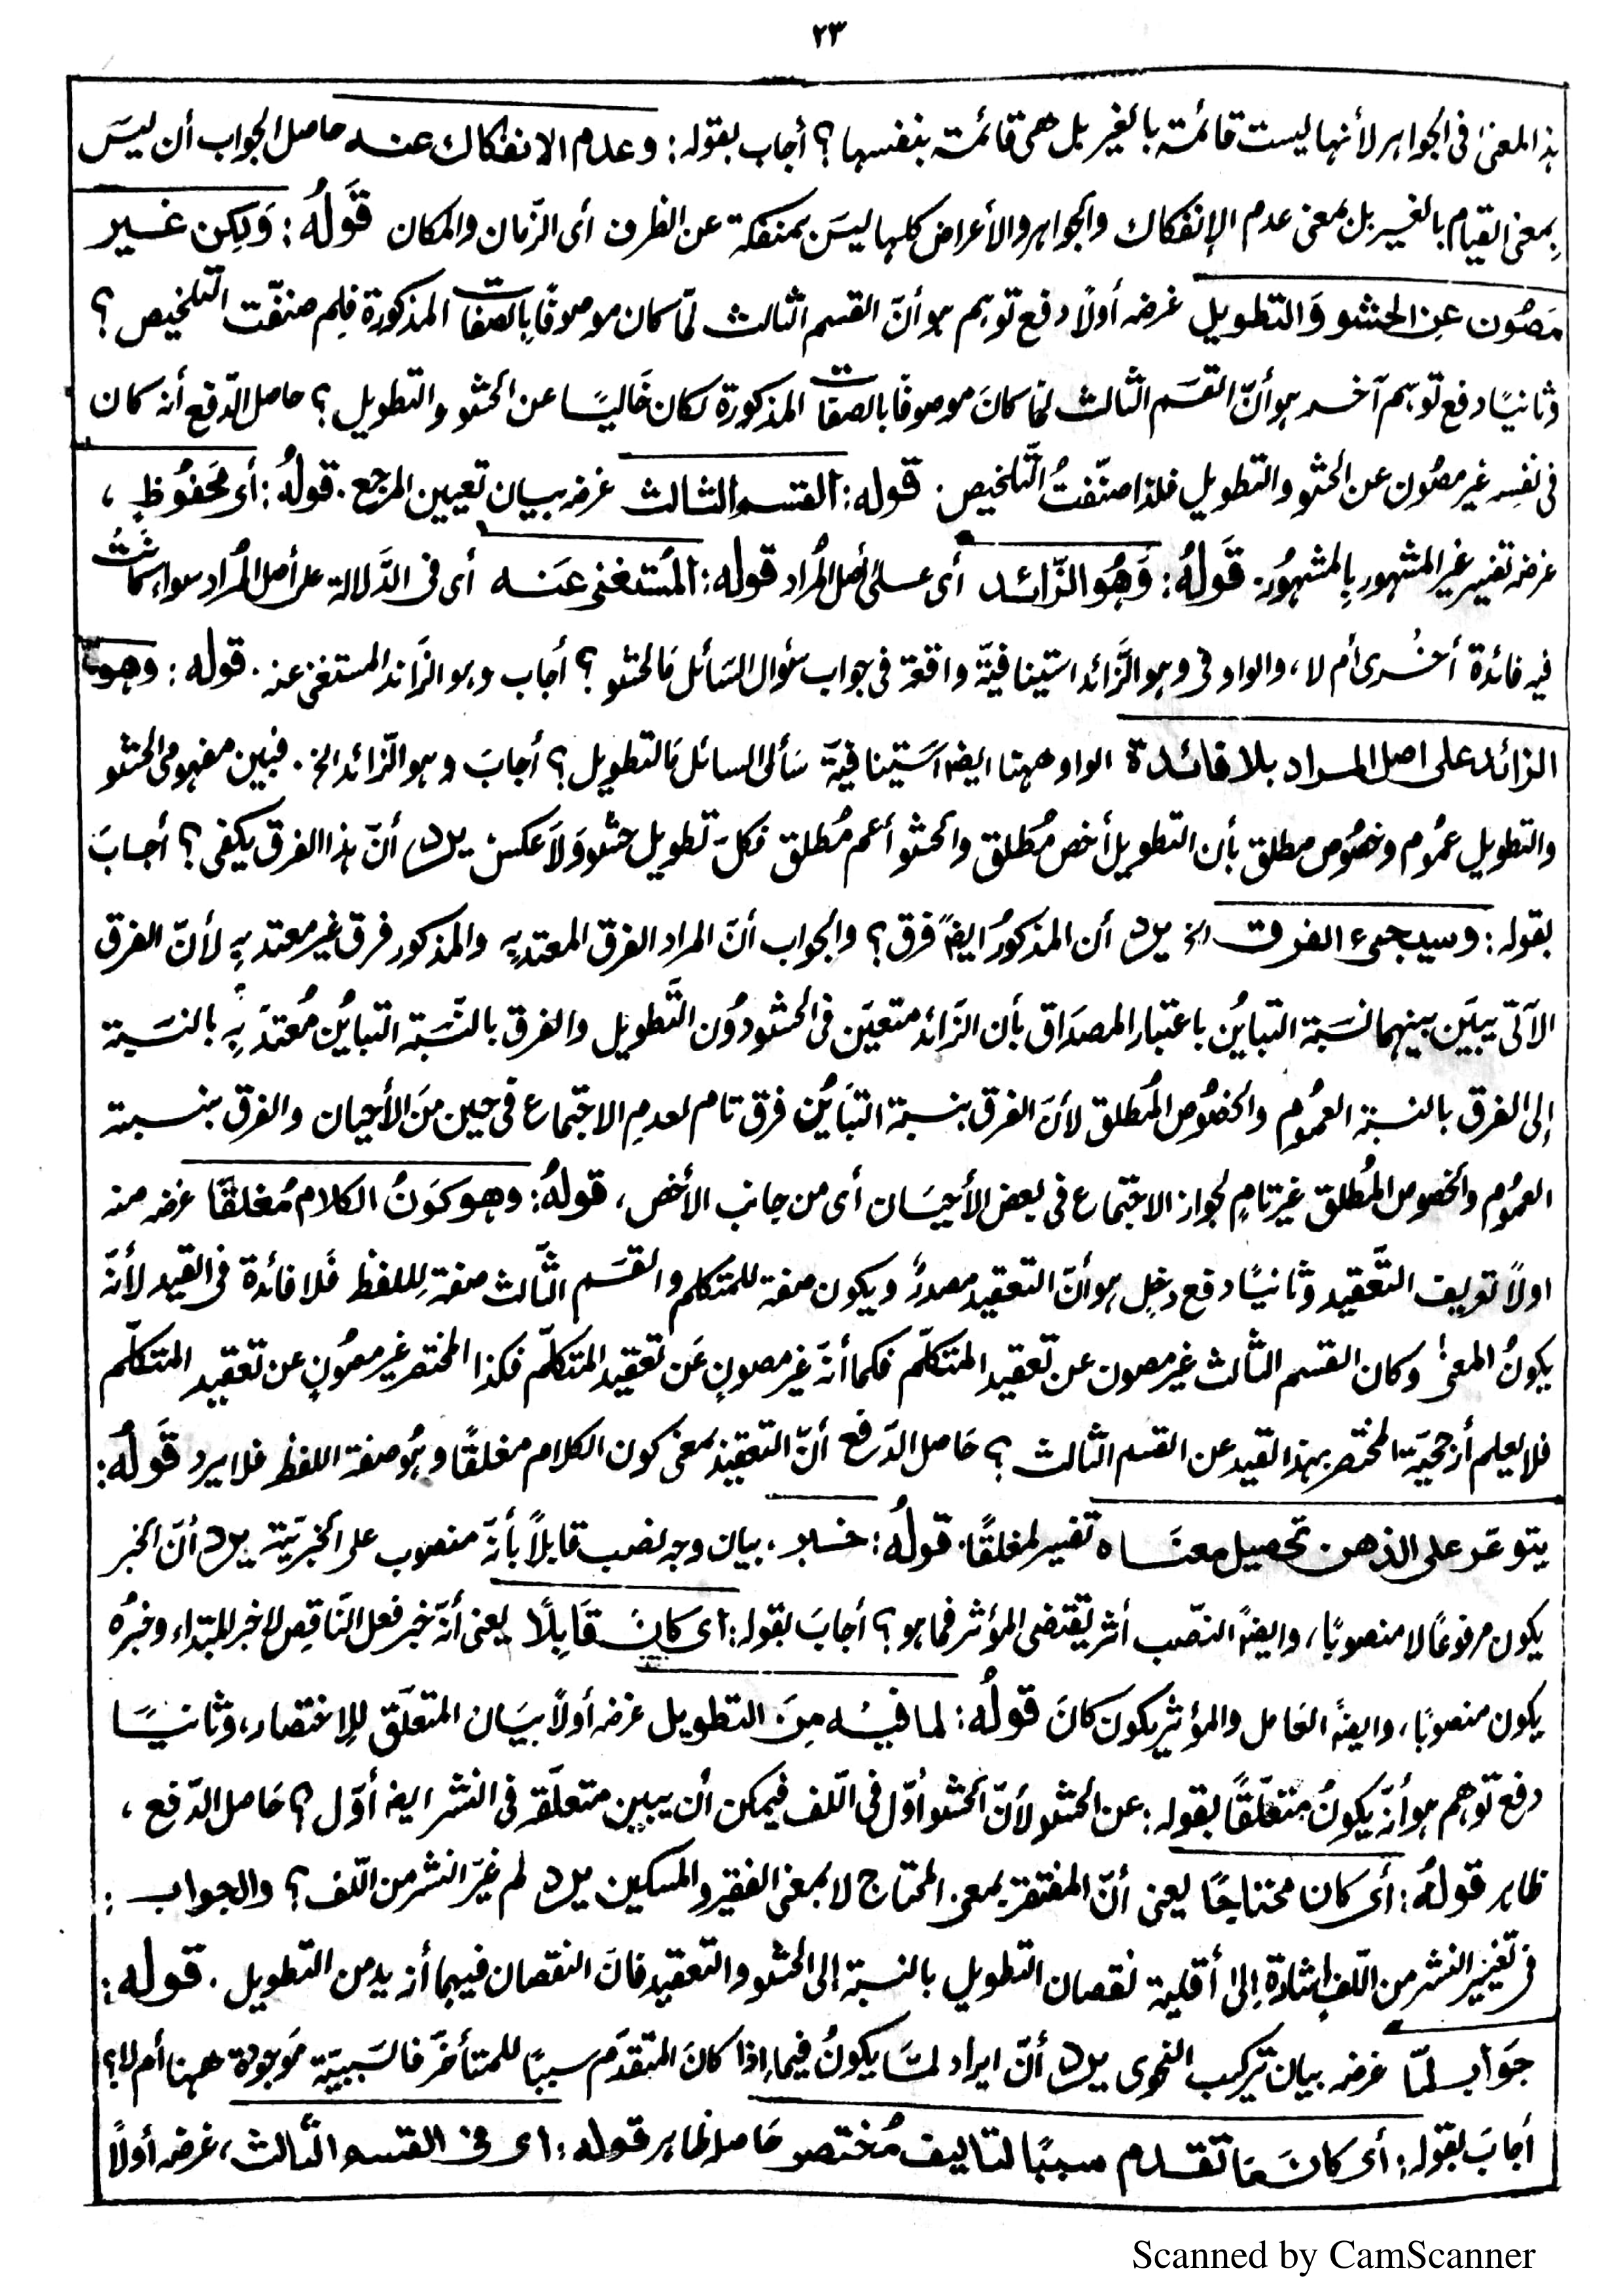 ٢٣
هذا المعنىٰ فى الجواهر لأنها ليست قائمة بالغير بل هى قائمة بنفسها؟ أجاب بقوله: وعدم الانفكاك عنه حاصل الجواب أن ليسَ
بِمعنى القيام بالغير بل بمعنى عدم الإنفكاك والجواهر والأعراض كلها ليسَ بمنفكة عن الظرف أى الزّمان والمكان قَولُهُ: وَلٰكِن غير
مَصُون عن الحشو وَالتطويل غرضه أولًا دفع توهم هو أنّ القسم الثالث لمّا كان موصوفًا بِالصفات المذكورة فلِم صنفّت التلخيص؟
وثانيًا دفع توهم آخر هو أنّ القسَم الثالث لمّا كانَ موصوفًا بالصفات المذكورة لكان خَاليًا عن الحشو والتطويل؟ حاصل الدّفع أنه كان
فى نفسِه غير مصُون عن الحشو والتطويل فلذا صنّفتُ التّلخيص. قوله: القسم الثالث غرضه بيان تعيين المرجع. قولُهُ: أى مَحفُوظٍ،
غرضه تفسير غير المشهور بِالمشهُور. قَولُهُ: وَهُوَ الزّائد أى علىٰ أصل المُراد قولُه: المُستغنى عَنه أى فى الدَّلالة على أصل المُراد سواء كانتُ
فيه فائدة أخرى أم لا، والواو فى وهو الزَّائد استينافيّة واقعة فى جواب سؤال السَائل مَا الحشو؟ أجاب وهو الزَّائد المستغنى عنه. قوله: وهو
الزائد على اصل المراد بلا فائدة الواو ههنا ايضًا اَستينافيّة سَأل السائل مَا التطويل؟ أجابَ وهو الزّائد الخ. فبين مفهومى الحشو
والتطويل عمُوم وخصُوص مطلق بأن التطويل أخص مُطلق والحشو أعم مُطلق فكلّ تطويل حشو وَلاَ عكسَ يرد أنّ هذا الفرق يكفى؟ أجابَ
بقوله: وسيجىء الفرق الخ يرد أن المذكورُ ايضًا فرق؟ والجواب أنّ المراد الفرق المعتدبِه والمذكور فرق غير معتدبِه لأنّ الفرق
الآتى يبيَن بينهما نسَبة التبايُن باعتبار المصدَاق بأن الزّائد متعيَن فى الحشو دوُن التَّطويل والفرق بالنّسَبة التبايُن مُعتدَبِه بالنسَبة
إلى الفرق بالنسبة العمُومِ والخصُوص المُطلق لأنّ الفرق بنسبة التبَايُن فرق تام لعدمِ الاجتماع فى حِين منَ الأحيان والفرق بنسبة
العمُومِ والخصوص المُطلق غير تامٍ لجواز الاجتماع فى بعض الأحيَان أى من جانب الأخص، قولهُ: وهو كَونُ الكلام مُغلقًا غرضه منه
اولًا تعريف التَّعقيد وثانيًا دفع دخِل هو أنّ التعقيد مصدرٌ ويكون صفة للمتكلم والقسَم الثّالث صفة لِللفظ فَلا فائدة فى القيد لأنّه
يكونُ المعنىٰ وكان القسم الثالث غير مصون عن تعقيد المتكلّم فكما أنّه غير مصونٍ عَن تعقيد المتكلّم فكذا المختصر غير مصُونٍ عن تعقيد المتكلّم
فلا يعلم أرجحيَة المختصر بهذا القيد عن القسم الثالث؟ حَاصل الدّفع أنّ التعقيدَ بمعنى كون الكلام مغلقًا وهُو صفة اللفظ فلا يرد قَولُهُ:
يتوعّر على الذهن تحصيل معنَاه تفسير لمغلقًا. قولُهُ: بيان وجه نصب قابلاً بأنّه منصوب على الخبريّة يرد أنّ الخبر
يكون مرفوعًا لا منصوبًا، وايضًا النصّب أثر يقتضى المؤثر فما هو؟ أجابَ بقوله: أى كانَ قَابِلًا يعنى أنّه خبر فعل النّاقِص لا خبر المبتداء وخبرُه
يكون منصوبًا، وايضًا العَامل والمؤثر يكون كَانَ قولُهُ: لما فيهِ مِنَ التطويل غرضه أولًا بيَان المتعلّق لِلاِختصار، وثانيًا
دفع توهم هو أنّه يكونُ متعلّقًا بقوله: عن الحشو لأنّ الحشو أوّل فى اللّف فيمكن أن يبين متعلّقه فى النشر ايضًا أوّل؟ حَاصل الدّفع،
ظاهر قولهُ: أى كان محتاجًا يعنى أنّ المفتقر بمعى المحتاج لا بمعنى الفقير والمسكين يرد لم غيّر النشر من اللّف؟ والجواب:
فى تغيير النشر من اللّف إشارة إلىٰ أقلية نقصان التطويل بالنسبة إلى الحشو والتعقيد فانّ النقصان فيهما أزيد من التطويل. قوله:
جَوَاب لمّا غرضه بيان تركيب النحوى يرد أنّ ايراد لمّا يكونُ فيما إذا كانَ المتقدّم سببًا للمتأخرّ فالسَببيّة مَوجودة ههنا أم لا؟
أجابَ بقوله: أى كانَ مَا تقدم سببًا لتاليف مُختصر حَاصله ظاهر قوله: اى فى القسم الثّالث، غرضه أولًا
Scanned by CamScanner